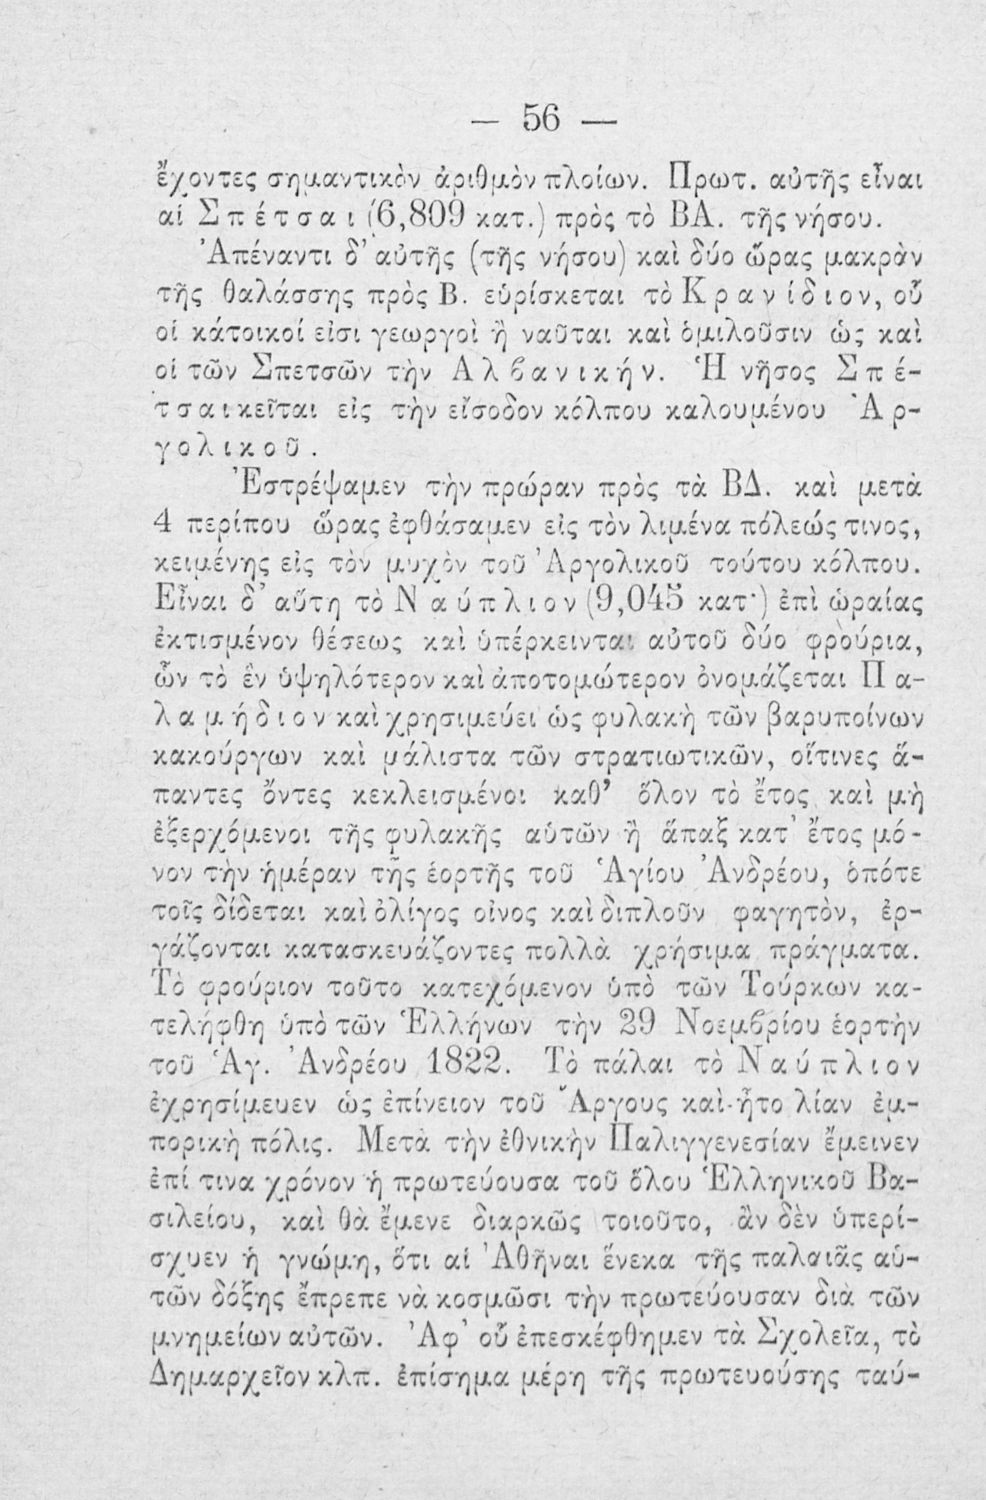 — 56 —
ἔχοντες σημαντικὸν ἀριθμὸν πλοίων. Πρωτ. αὐτῆς εἶναι
αἱ Σπέτσαι (6,809 κατ.) πρὸς τὸ ΒΑ. τῆς νήσου.
Ἀπέναντι δ’ αὐτῆς (τῆς νήσου) καὶ δύο ὥρας μακρὰν
τῆς θαλάσσης πρὸς Β. εὑρίσκεται τὸ Κρανίδιον, οὗ
οἱ κάτοικοί εἰσι γεωργοὶ ἢ ναῦται καὶ ὁμιλοῦσιν ὡς καὶ
οἱ τῶν Σπετσῶν τὴν Ἀλβανικήν. Ἡ νῆσος Σπέ-
τσαι κεῖται εἰς τὴν εἴσοδον κόλπου καλουμένου Ἀρ-
γολικοῦ.
Ἐστρέψαμεν τὴν πρώραν πρὸς τὰ ΒΔ. καὶ μετὰ
4 περίπου ὥρας ἐφθάσαμεν εἰς τὸν λιμένα πόλεώς τινος,
κειμένης εἰς τὸν μυχὸν τοῦ Ἀργολικοῦ τούτου κόλπου.
Εἶναι δ’ αὕτη τὸ Ναύπλιον (9,045 κατ·) ἐπὶ ὡραίας
ἐκτισμένον θέσεως καὶ ὑπέρκεινται αὐτοῦ δύο φρούρια,
ὧν τὸ ἓν ὑψηλότερον καὶ ἀποτομώτερον ὀνομάζεται Πα-
λαμήδιον καὶ χρησιμεύει ὡς φυλακὴ τῶν βαρυποίνων
κακούργων καὶ μάλιστα τῶν στρατιωτικῶν, οἵτινες ἅ-
παντες ὄντες κεκλεισμένοι καθ’ ὅλον τὸ ἔτος καὶ μὴ
ἐξερχόμενοι τῆς φυλακῆς αὐτῶν ἢ ἅπαξ κατ’ ἔτος μό-
νον τὴν ἡμέραν τῆς ἑορτῆς τοῦ Ἁγίου Ἀνδρέου, ὁπότε
τοῖς δίδεται καὶ ὀλίγος οἶνος καὶ διπλοῦν φαγητὸν, ἐρ-
γάζονται κατασκευάζοντες πολλὰ χρήσιμα πράγματα.
Τὸ φρούριον τοῦτο κατεχόμενον ὑπὸ τῶν Τούρκων κα-
τελήφθη ὑπὸ τῶν Ἑλλήνων τὴν 29 Νοεμβρίου ἑορτὴν
τοῦ Ἁγ. Ἀνδρέου 1822. Τὸ πάλαι τὸ Ναύπλιον
ἐχρησίμευεν ὡς ἐπίνειον τοῦ Ἄργους καὶ ἦτο λίαν ἐμ-
πορικὴ πόλις. Μετὰ τὴν ἐθνικὴν Παλιγγενεσίαν ἔμεινεν
ἐπί τινα χρόνον ἡ πρωτεύουσα τοῦ ὅλου Ἑλληνικοῦ Βα-
σιλείου, καὶ θὰ ἔμενε διαρκῶς τοιοῦτο, ἂν δὲν ὑπερί-
σχυεν ἡ γνώμη, ὅτι αἱ Ἀθῆναι ἕνεκα τῆς παλαιᾶς αὑ-
τῶν δόξης ἔπρεπε νὰ κοσμῶσι τὴν πρωτεύουσαν διὰ τῶν
μνημείων αὐτῶν. Ἀφ’ οὗ ἐπεσκέφθημεν τὰ Σχολεῖα, τὸ
Δημαρχεῖον κλπ. ἐπίσημα μέρη τῆς πρωτευούσης ταύ-